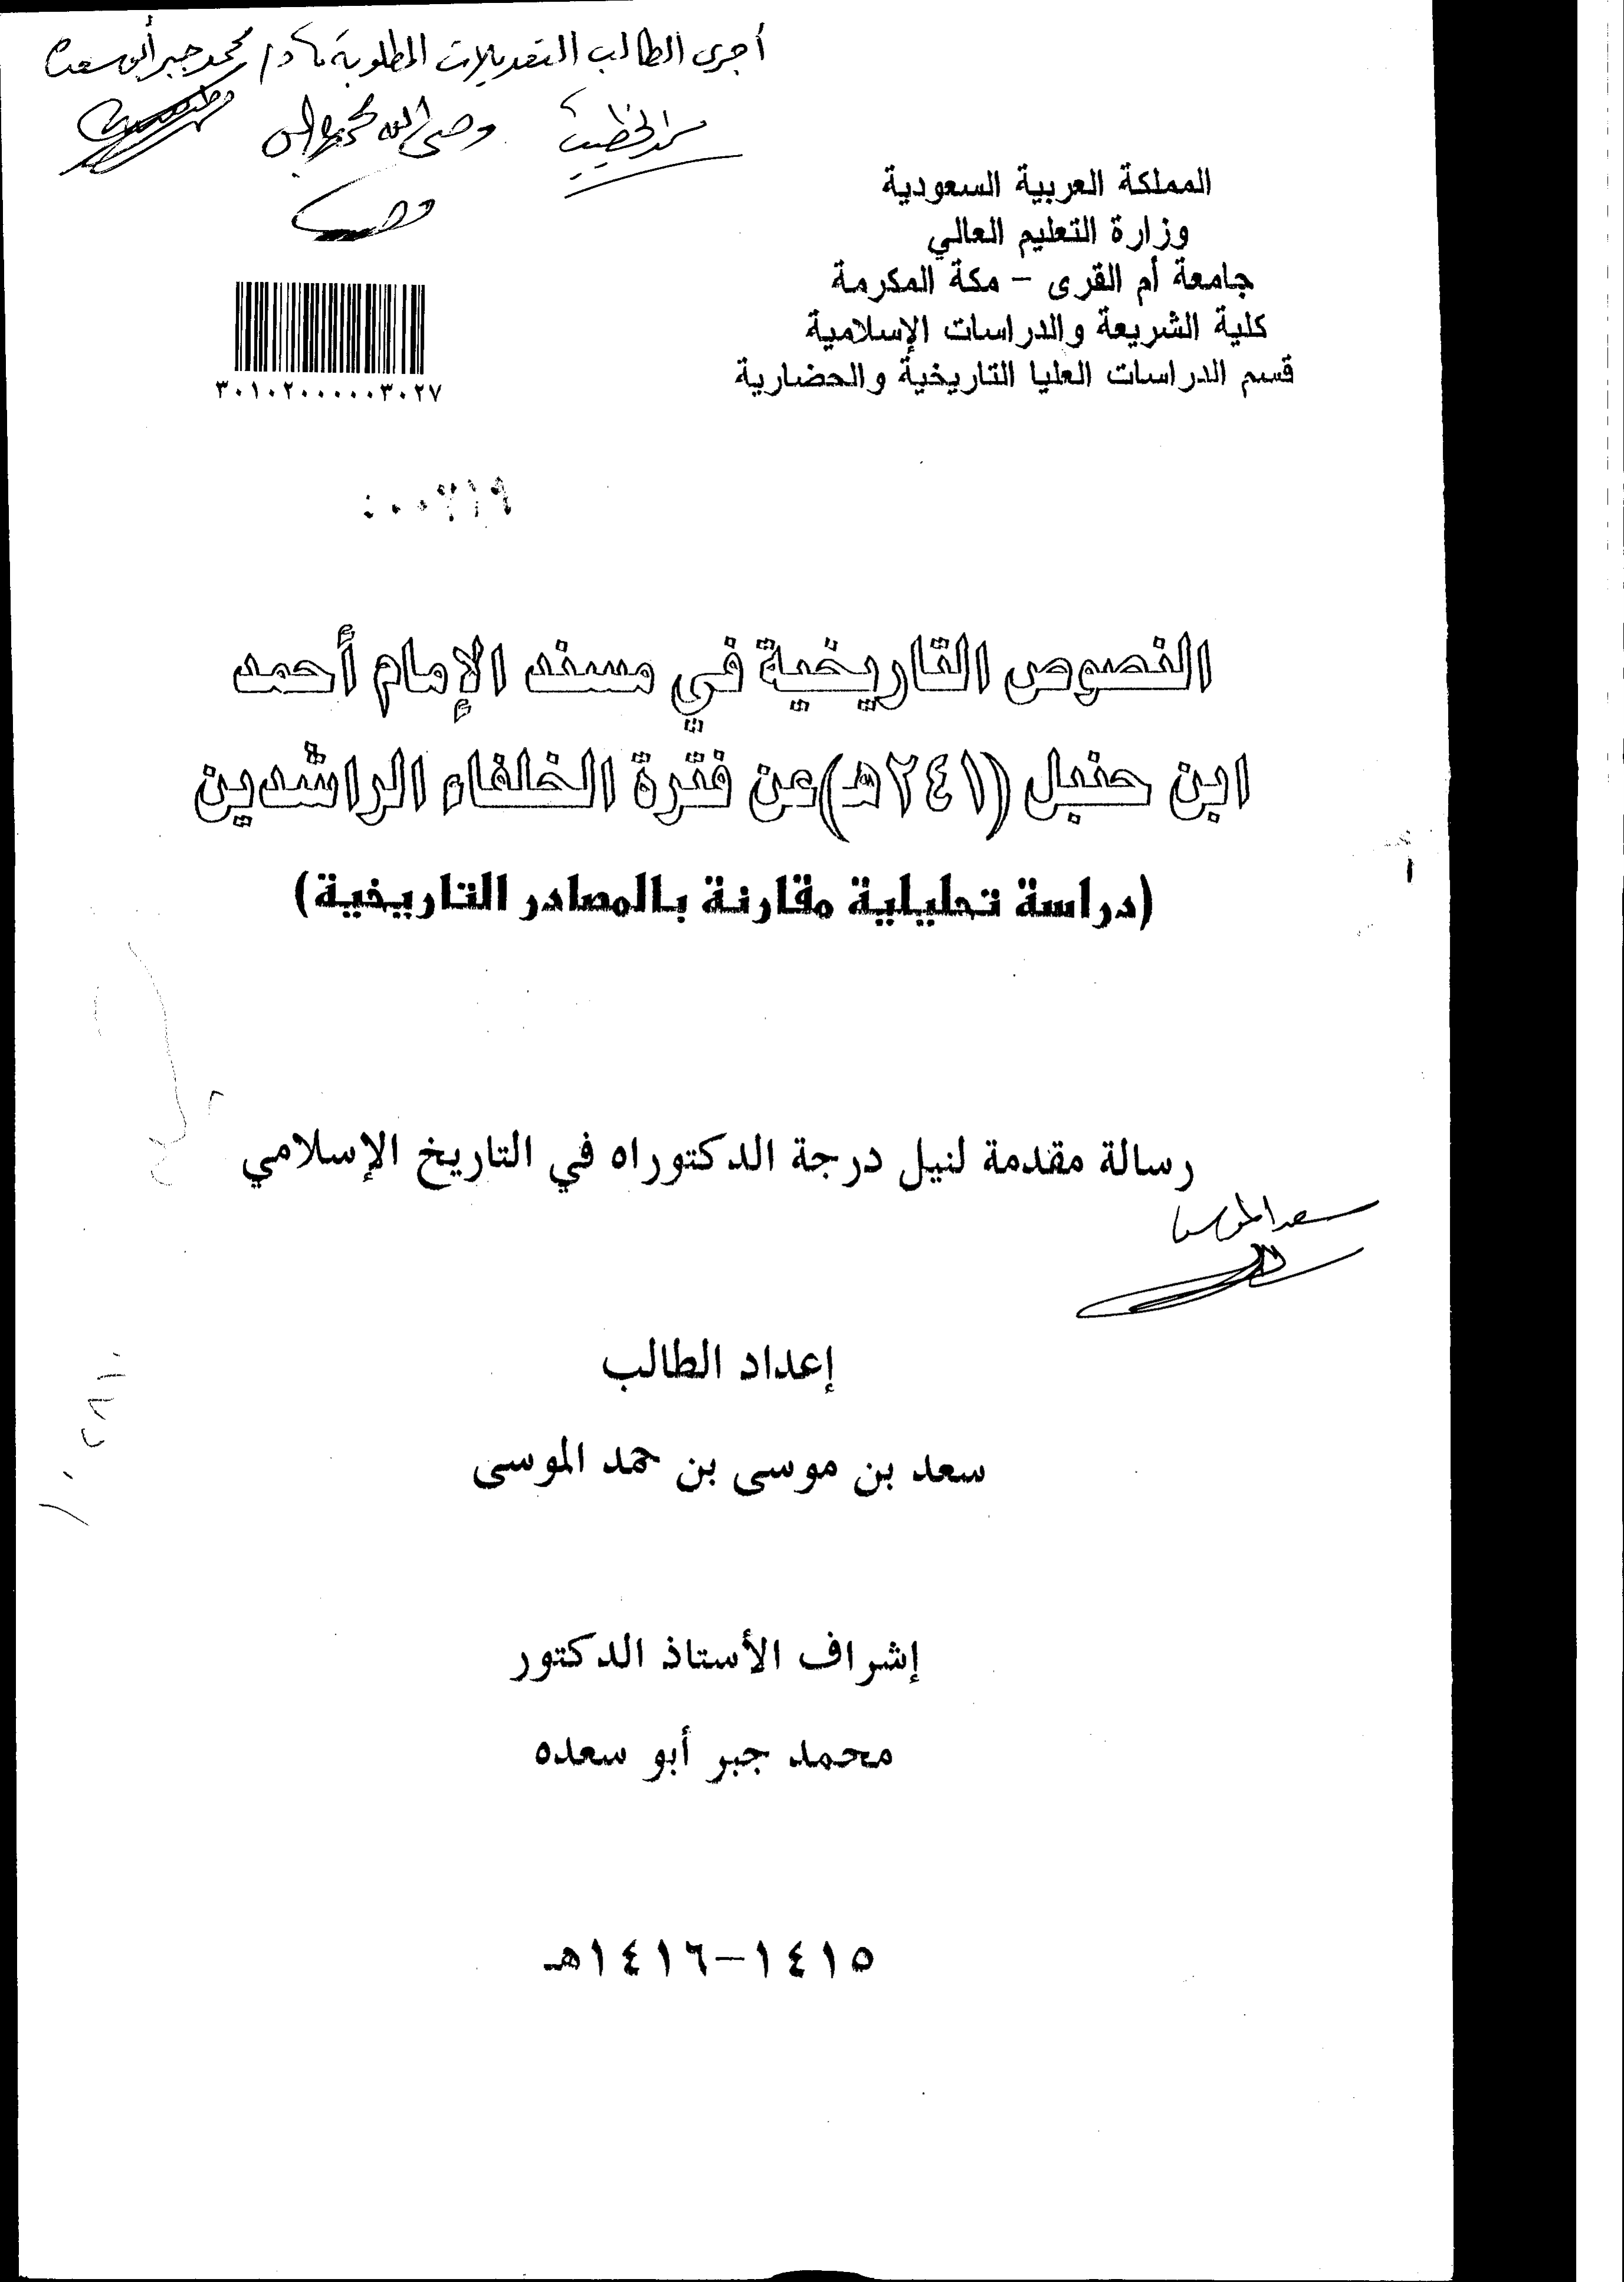 أجرى الطالب التعديلات المطلوبة د/ محمد جبر أبو سعده
وصي الله محمد عباس
المملكة العربية السعودية
وزارة التعليم العالي
جامعة أم القرى - مكة المكرمة
كلية الشريعة والدراسات الإسلامية
قسم الدراسات العليا التاريخية والحضارية
٣٠١٠٢٠٠٠٠٠٣٠٢٧
النصوص التاريخية في مسند الإمام أحمد
ابن حنبل (٢٤١هـ) عن فترة الخلفاء الراشدين
(دراسة تحليلية مقارنة بالمصادر التاريخية)
رسالة مقدمة لنيل درجة الدكتوراه في التاريخ الإسلامي
سعد الموسى
إعداد الطالب
سعد بن موسى بن حمد الموسى
إشراف الأستاذ الدكتور
محمد جبر أبو سعده
١٤١٥-١٤١٦هـ